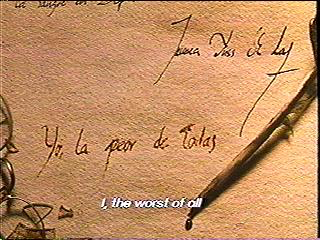 la sangre en
Juana Inés de la
Yo, la peor de todas
I, the worst of all